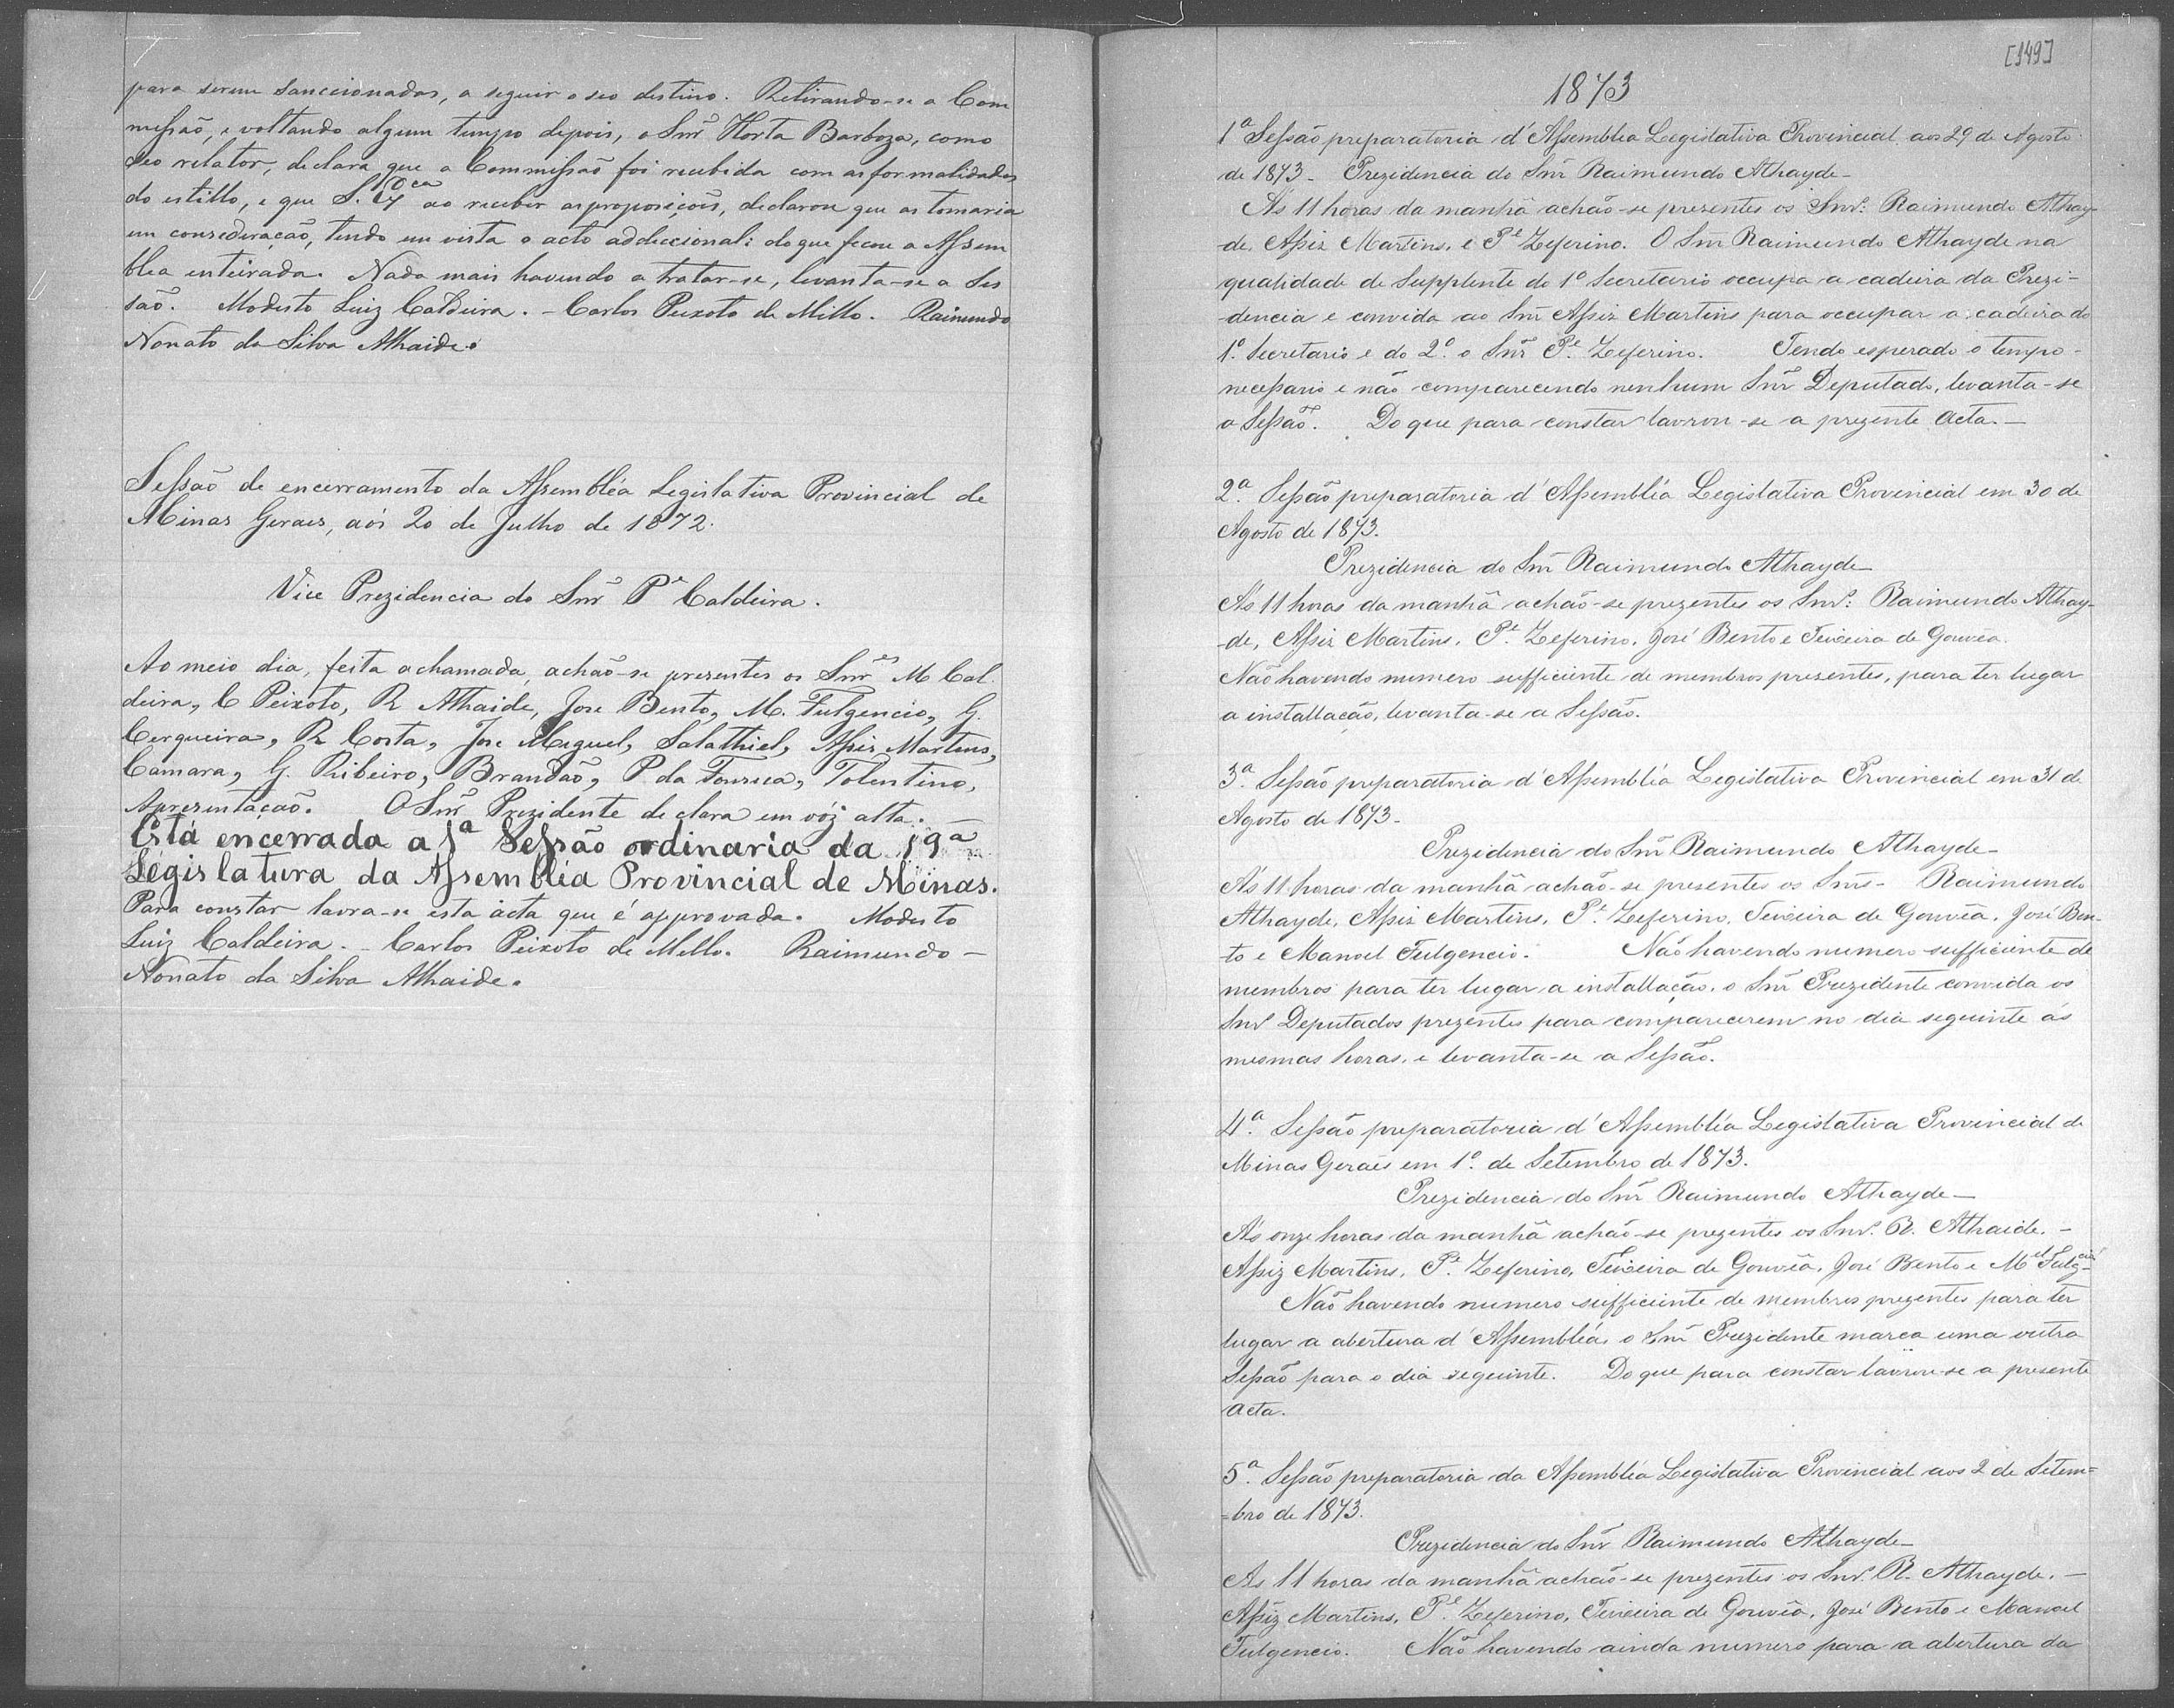 para serem sanccionadas, a seguir o seo destino. Retirando-se a Com
missaõ, e voltando algum tempo depois, o Snr̃ Horta Barboza, como
seo relator, declara que a Commissaõ foi recebida com as formalidades
do estillo, e que S. Ex.cia ao receber as proposiçoẽs, declarou que as tomaria
em consederaçaõ, tendo em vista o acto addeccional: do que ficou a Assem
bléa enteirada. Nada mais havendo a tratar-se, levanta-se a Ses
saõ. Modesto Luiz Caldeira. - Carlos Peixoto de Mello. Raimundo
Nonato da Silva Athaide.
Sessaõ de encerramento da Assembléa Legislativa Provincial de
Minas Geraes, aós 20 de Julho de 1872.
Vice Prezidencia do Snr̃ Pe Caldeira.
Ao meio dia, feita a chamada, achaõ-se presentes os Snr̃es M Cal
deira, C Peixoto, R Athaide, Jose Bento, M. Fulgencio, G.
Cerqueira, R Costa, Jose Miguel, Salathiel, Assis Martins,
Camara, G. Ribeiro, Brandaõ, P. da Fonseca, Tolentino,
Apresentaçaõ. O Snr̃ Prezidente declara em vóz alta.
Está encerrada a 1a Sessão ordinaria da 19a
Legislatura da Assembléa Provincial de Minas.
Para constar lavra-se esta acta que é approvada. Modesto
Luiz Caldeira. - Carlos Peixoto de Mello. Raimundo -
Nonato da Silva Athaide.
[149]
1873
1a Sessão preparatoria d'Assembléa Legislativa Provincial aos 29 de Agosto
de 1873 - Prezidencia do Snr̃ Raimundo Athayde -
Ás 11 horas da manhã achão-se prezentes os Snrs: Raimundo Athay-
-de, Assiz Martins, e Pe Zeferino. O Snr̃ Raimundo Athayde na
qualidade de Supplente do 1o Secretario occupa a cadeira da Prezi-
-dencia e convida ao Snr̃ Assiz Martins para occupar a cadeira do
1o. Secretario e do 2o. o Snr̃ Pe. Zeferino. Tendo esperado o tempo -
necessario e não comparecendo nenhum Snr̃ Deputado, levanta-se
a Sessão. Do que para constar lavrou-se a prezente Acta. -
2a. Sessão preparatoria d'Assembléa Legislativa Provincial em 30 de
Agosto de 1873.
Prezidencia do Snr̃ Raimundo Athayde -
Ás 11 horas da manhã achão-se prezentes os Snrs: Raimundo Athay-
-de, Assiz Martins, Pe. Zeferino, José Bento e Teixeira de Gouvea.
Não havendo numero sufficiente de membros prezentes, para ter lugar
a installação, levanta-se a Sessão.
3a. Sessão preparatoria d'Assembléa Legislativa Provincial em 31 de
Agosto de 1873 -
Prezidencia do Snr̃ Raimundo Athayde -
Ás 11 horas da manhã achão-se presentes os Snrs - Raimundo
Athayde, Assiz Martins, Pe. Zeferino, Teixeira de Gouvêa, José Ben-
-to e Manoel Fulgencio. Não havendo numero sufficiente de
membros para ter lugar a installação, o Snr̃ Prezidente convida os
Snrs Deputados prezentes para comparecerem no dia seguinte ás
mesmas horas, e levanta-se a Sessão.
4a. Sessão preparatoria d'Assembléa Legislativa Provincial de
Minas Geraes em 1o. de Setembro de 1873.
Prezidencia do Snr̃ Raimundo Athayde -
Ás onze horas da manhã achão-se prezentes os Snrs. R. Athaide, -
Assiz Martins, Pe. Zeferino, Teixeira de Gouvêa, José Bento e Mel Fulgcio
Não havendo numero sufficiente de membros prezentes para ter
lugar a abertura d'Assembléa, o Snr̃ Prezidente marca uma outra
Sessão para o dia seguinte. Do que para constar lavrou-se a presente
Acta.
5a. Sessão preparatoria da Assembléa Legislativa Provincial aos 2 de Setem=
=bro de 1873.
Prezidencia do Snr̃ Raimundo Athayde -
As 11 horas da manhã achão-se prezentes os Snrs. R. Athayde, -
Assiz Martins, Pe. Zeferino, Teixeira de Gouvêa, José Bento e Manoel
Fulgencio. Não havendo ainda numero para a abertura da